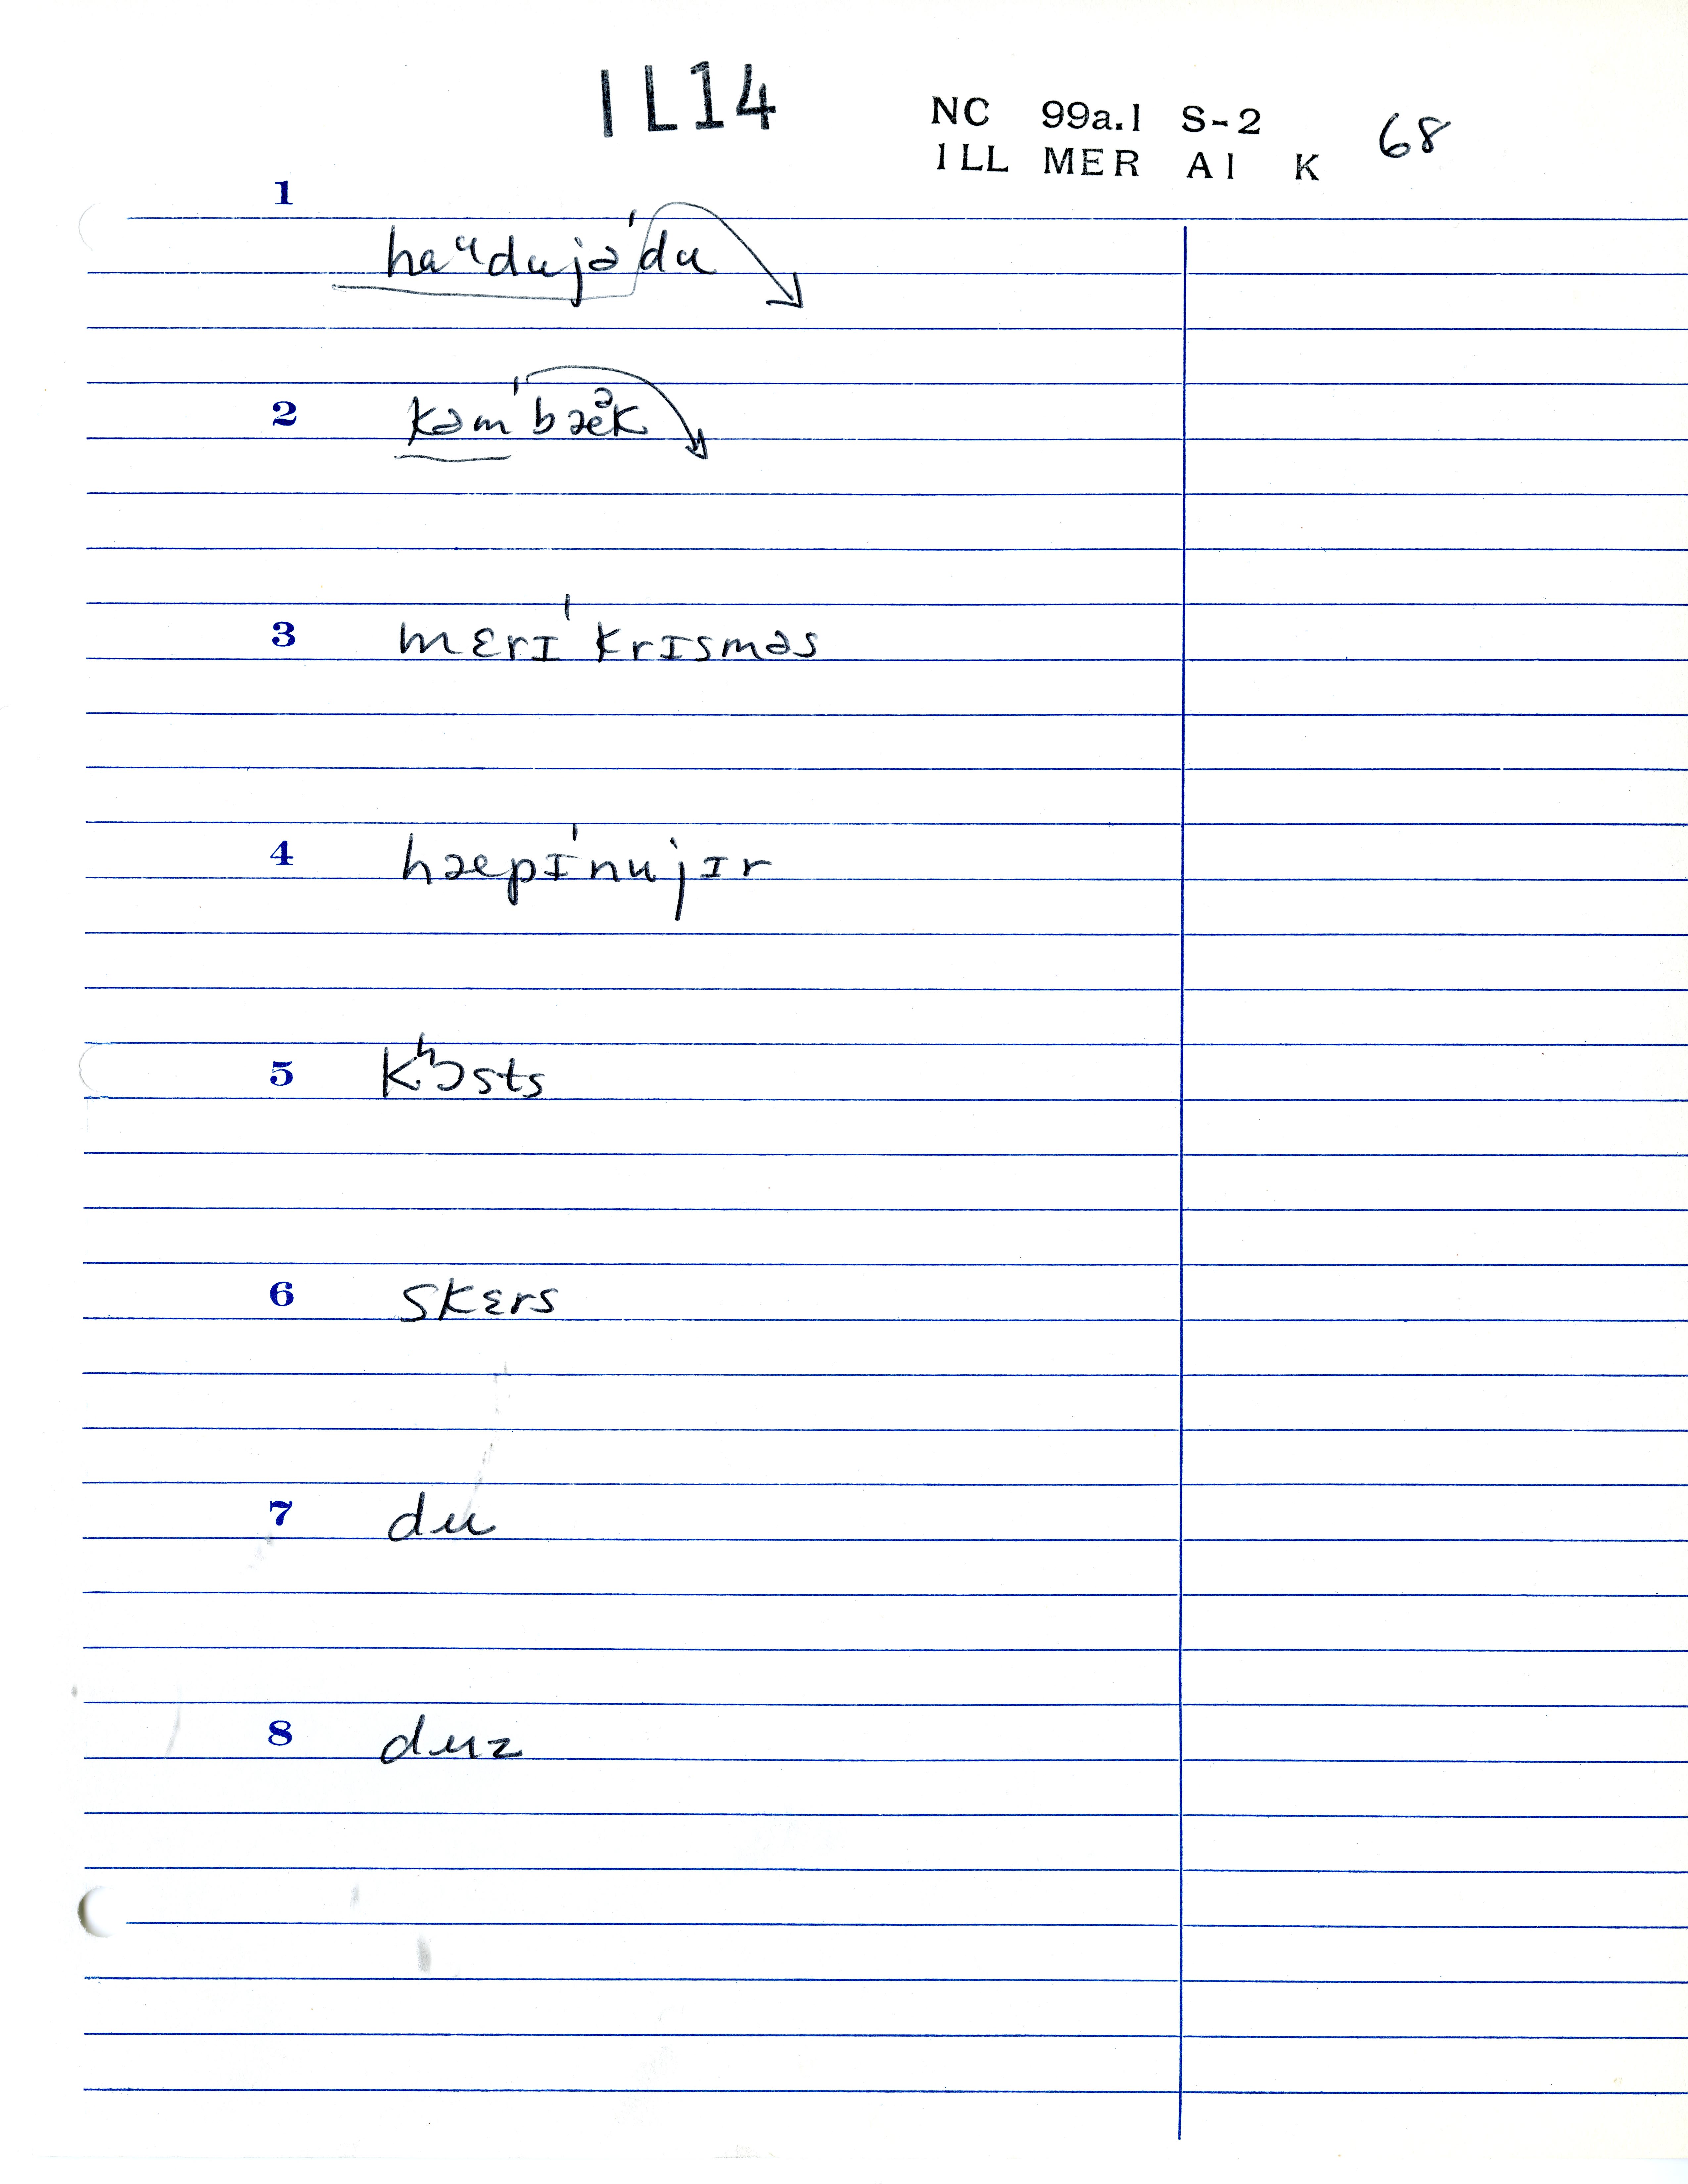 IL14
NC 99a.1 S-2 68
ILL MER A1 K
1 haᵘdujəˈdu
2 kəmˈbæᵊk
3 mɛrɪˈkrɪsməs
4 hæpɪˈnujɪr
5 kʰɔsts
6 skɛrs
7 du
8 duz